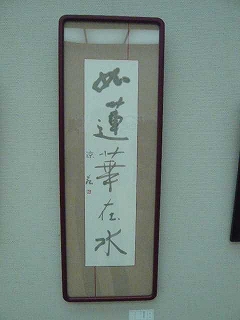 如蓮華在水